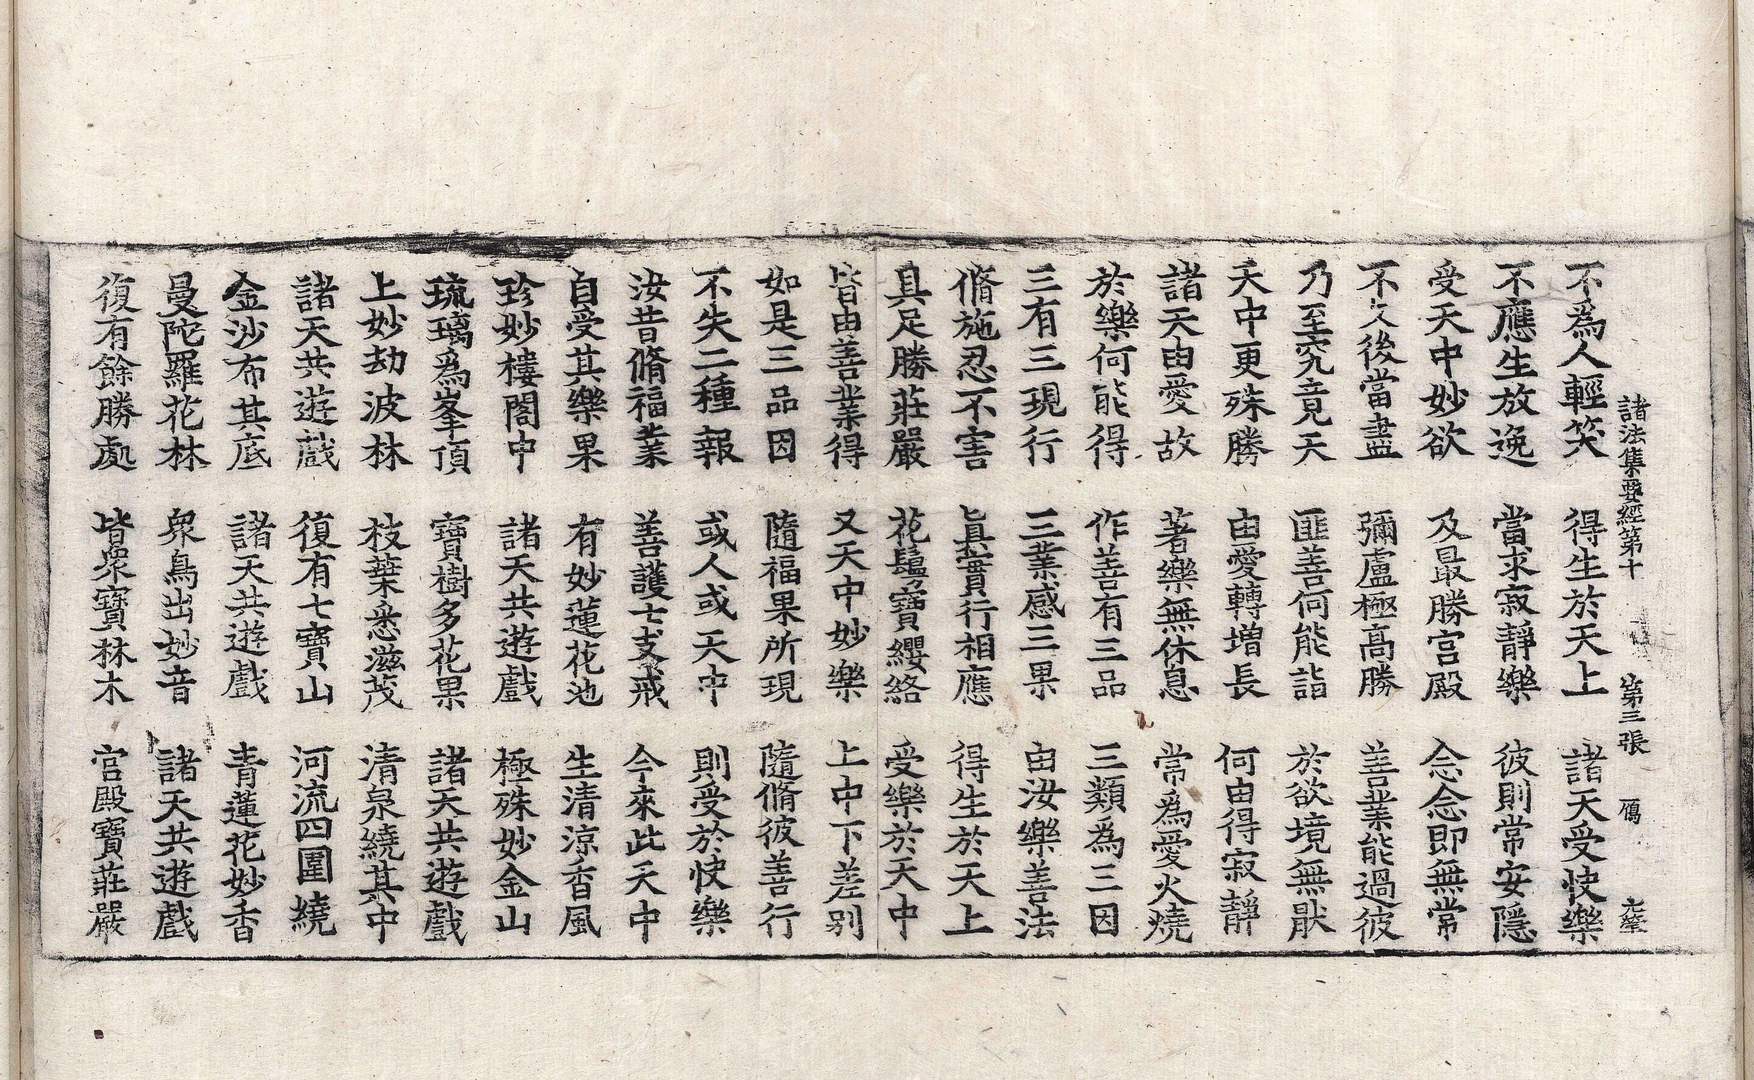 諸法集要經第十　第三張
不為人輕笑　得生於天上　諸天受快樂
不應生放逸　當求寂靜樂　彼則常安隱
受天中妙欲　及最勝宮殿　念念即無常
不久後當盡　彌盧極高勝　善業能過彼
乃至究竟天　匪善何能詣　於欲境無猒
天中更殊勝　由愛轉增長　何由得寂靜
諸天由愛故　著樂無休息　常為愛火燒
於樂何能得　作善有三品　三類為三因
三有三現行　三業感三果　由汝樂善法
脩施忍不害　真實行相應　得生於天上
具足勝莊嚴　花鬘寶纓絡　受樂於天中
皆由善業得　又天中妙樂　上中下差别
如是三品因　隨福果所現　隨脩彼善行
不失二種報　或人或天中　則受於快樂
汝昔脩福業　善護七支戒　今來此天中
自受其樂果　有妙蓮花池　生清涼香風
珍妙樓閣中　諸天共遊戲　極殊妙金山
琉璃為峯頂　寶樹多花果　諸天共遊戲
上妙劫波林　枝葉悉滋茂　清泉繞其中
諸天共遊戲　復有七寶山　河流四圍繞
金沙布其底　諸天共遊戲　青蓮花妙香
曼陀羅花林　衆鳥出妙音　諸天共遊戲
復有餘勝處　皆衆寶林木　宮殿寶莊嚴